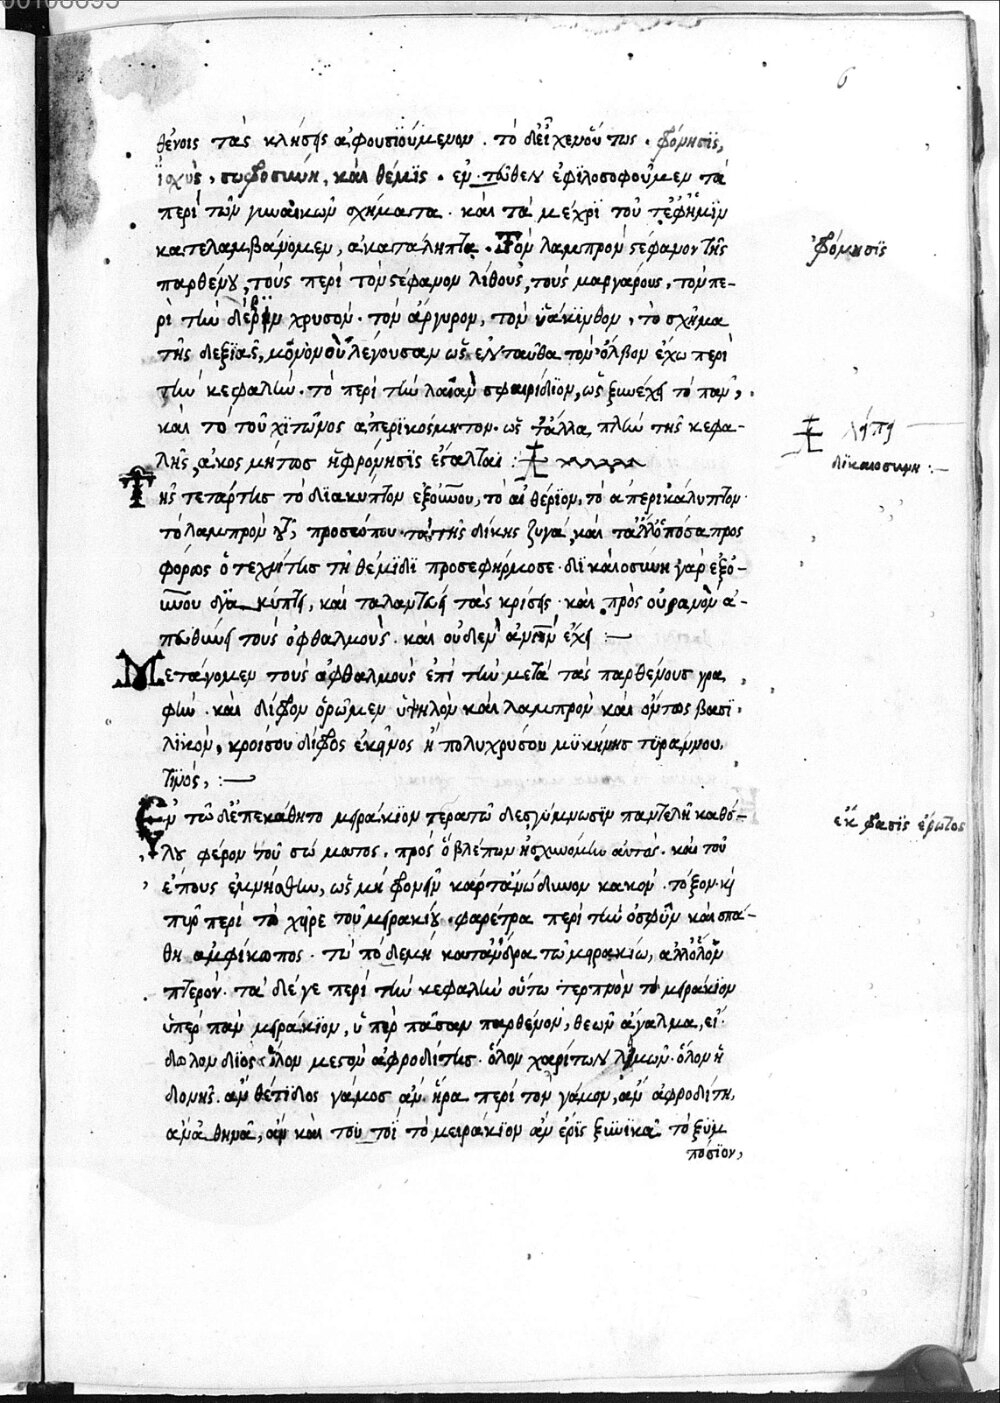 6
θένοις τὰς κλήσης ἀφουσϊούμενον. τὸ δ εἶχεν οὕτως. φρόνησϊς,
ἰσχὺς, σωφροσύνη, καὶ θέμϊς. ἐντεῦθεν ἐφιλοσοφοῦμεν τὰ
περὶ τῶν γυναικῶν σχήματα. καὶ τὰ μέχρϊ τοῦ τέφ ἡμῖν
κατελαμβάνομεν, ἀκατάληπτα. Τὸν λαμπρὸν στέφανον τῆς
παρθένου, τοὺς περὶ τὸν στέφανον λίθους, τοὺς μαργάρους, τὸν πε-
ρὶ τὴν χρυσὸν. τὸν ἄργυρον, τὸν ὑάκϊνθον, τὸ σχῆμα
τῆς δεξϊᾶς, μόνον οὐ λέγουσαν ὡς ἐνταῦθα τὸν ὄλβον ἔχω περὶ
τὴν κεφαλὴν. τὸ περὶ τὴν λαιὰν σφαιρίδϊον, ὡς ξυνέχῃ τὸ πᾶν,
καὶ τὸ τοῦ χϊτῶνος ἀπερϊκόσμητον. ὡς τἄλλα, πλὴν τῆς κεφα-
λῆς, ἀκοσμήτως ἡ φρόνησϊς ἐσταλται:
Τῆς τετάρτης τὸ δϊακύπτον ἐξ οὐρανοῦ, τὸ αἰθέρϊον, τὸ ἀπερικάλυπτον
τὸ λαμπρὸν τοῦ προσώπου τὰ τῆς δίκης ζυγά, καὶ τἄλλ ὁπόσα προς
φόρως ὁ τεχνίτης τῇ θέμϊδι προσεφήρμοσε. δϊκαιοσύνη γὰρ ἐξ οὐ-
ρανοῦ δϊακύπτῃ, καὶ ταλαντεύῃ τὰς κρίσης. καὶ πρὸς οὐρανὸν ἀ-
πευθύνῃ τοὺς ὀφθαλμοὺς. καὶ οὐδὲν ἄνισον ἔχῃ:
Μετάγομεν τοὺς ὀφθαλμοὺς ἐπὶ τὴν μετὰ τὰς παρθένους γρα
φὴν. καὶ δίφρον ὁρῶμεν ὑψηλὸν καὶ λαμπρὸν καὶ ὄντως βασϊ
λϊκὸν, κροίσου δίφρος ἐκῆνος ἢ πολυχρύσου μϋκήνης τϋράννου
τϊνός,:
Ἐν τῷ δ ἐπεκάθητο μϊράκϊον τεραπῶδες γύμνωσϊν παντελῆ καθό-
λου φέρον τοῦ σώματος. πρὸς ὃ βλέπων ἠσχυνόμην αὐτὸς. καὶ τοῦ
ἔπους ἐμνήσθην, ὡς μὴ φρονεῖν κάρτ ἀνώδυνον κακὸν. τόξον κ
πῦρ περὶ τὼ χῆρε τοῦ μϊρακίου. φαρέτρα περὶ τὴν ὀσφῦν καὶ σπά-
θη ἀμφίκωπος. τὼ πόδε μὴ κατ ἄνδρα τῷ μηρακίῳ, ἀλλ ὅλον
πτερόν. τὰ δέ γε περὶ τὴν κεφαλὴν οὕτω τερπνὸν τὸ μϊράκϊον
ὑπὲρ πᾶν μϊράκϊον, ὑπὲρ πᾶσαν παρθένον, θεῶν ἄγαλμα, εἴ
δωλον διὸς ὅλον μεστὸν ἀφροδίτης. ὅλον χαρίτων λϊμών. ὅλον ἡ
δονῆς. ἂν θέτϊδος γάμος ἂν ἥρα περὶ τὸν γάμον, ἂν ἀφροδίτη,
ἂν ἀθηνᾶ, ἂν καὶ τουτοΐ τὸ μειράκϊον ἂν ἔρϊς ξϋνῆκα τὸ ξϋμ
πόσϊον,
φρόνησϊς
λήπῃ
δϊκαιοσύνη:
ἔκφρασϊς ἔρωτος